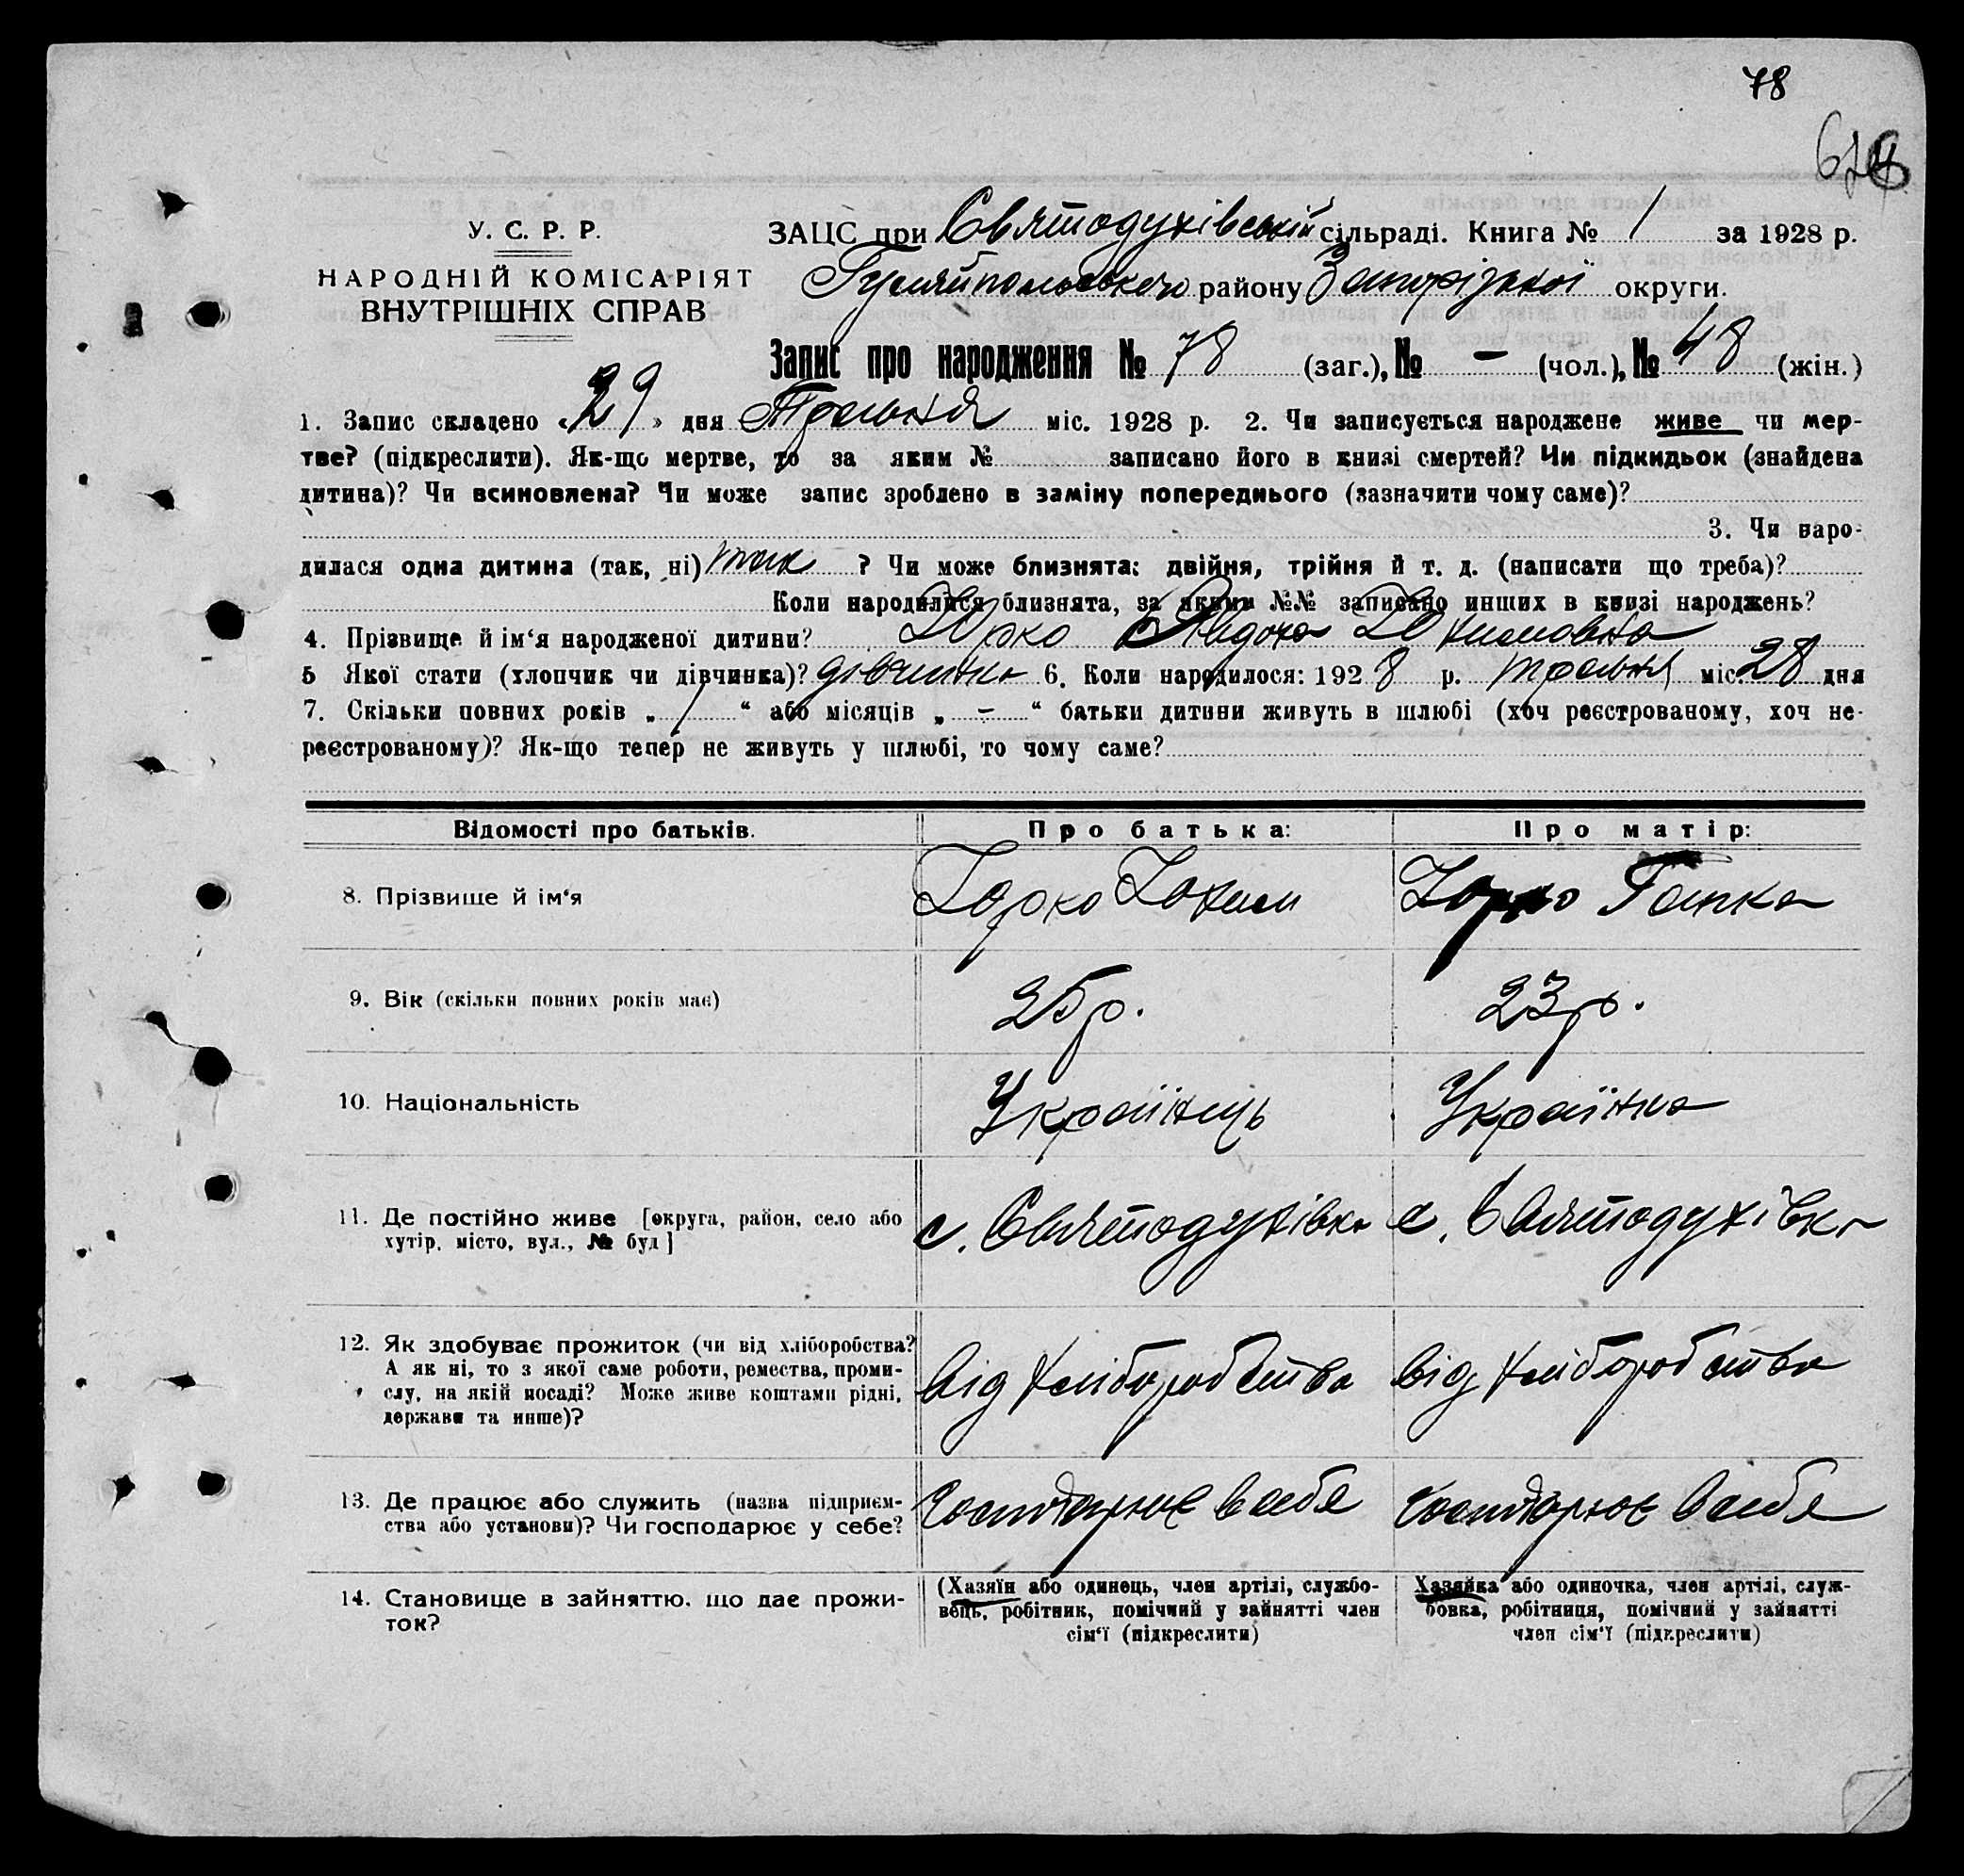 78
У. С. Р. Р.
НАРОДНІЙ КОМІСАРІЯТ
ВНУТРІШНІХ СПРАВ
ЗАЦС при Святодухівській сільраді. Книга № 1 за 1928 р.
Гуляйпольського району Запорізької округи.
Запис про народження № 78 (заг.), № – (чол.), № 48 (жін.)
1. Запис складено «29» дня Травня міс. 1928 р. 2. Чи записується народжене живе чи мер-
тве? (підкреслити). Як-що мертве, то за яким № записано його в книзі смертей? Чи підкидьок (знайдена
дитина)? Чи всиновлена? Чи може запис зроблено в заміну попереднього (зазначити чому саме)?
3. Чи наро-
дилася одна дитина (так, ні) так ? Чи може близнята: двійня, трійня й т. д. (написати що треба)?
Коли народилися близнята, за якими №№ записано инших в книзі народжень?
4. Прізвище й ім‘я народженої дитини? Юрко Явдоха Юхимовна
5 Якої стати (хлопчик чи дівчинка)? дівчинка 6. Коли народилося: 1928 р. травня міс. 28 дня
7. Скільки повних років „ 1 “ або місяців „ – “ батьки дитини живуть в шлюбі (хоч реєстрованому, хоч не-
реєстрованому)? Як-що тепер не живуть у шлюбі, то чому саме?
Відомості про батьків. Про батька: Про матір:
8. Прізвище й ім‘я Юрко Юхим Юрко Гапка
9. Вік (скільки повних років має) 25 р. 23 р.
10. Національність Українець Українка
11. Де постійно живе [округа, район, село або
хутір, місто, вул., № буд] с. Святодухівка с. Святодухівка
12. Як здобуває прожиток (чи від хліборобства?
А як ні, то з якої саме роботи, ремества, проми-
слу, на якій посаді? Може живе коштами рідні,
держави та инше)? від хліборобства від хліборобства
13. Де працює або служить (назва підприєм-
ства або установи)? Чи господарює у себе? господарює в себе господарює в себе
14. Становище в зайняттю, що дає прожи-
ток?
(Хазяїн або одинець, член артілі, службо-
вець, робітник, помічний у зайнятті член
сім‘ї (підкреслити)
Хазяйка або одиночка, член артілі, служ-
бовка, робітниця, помічний у зайнятті
член сім‘ї (підкреслити)